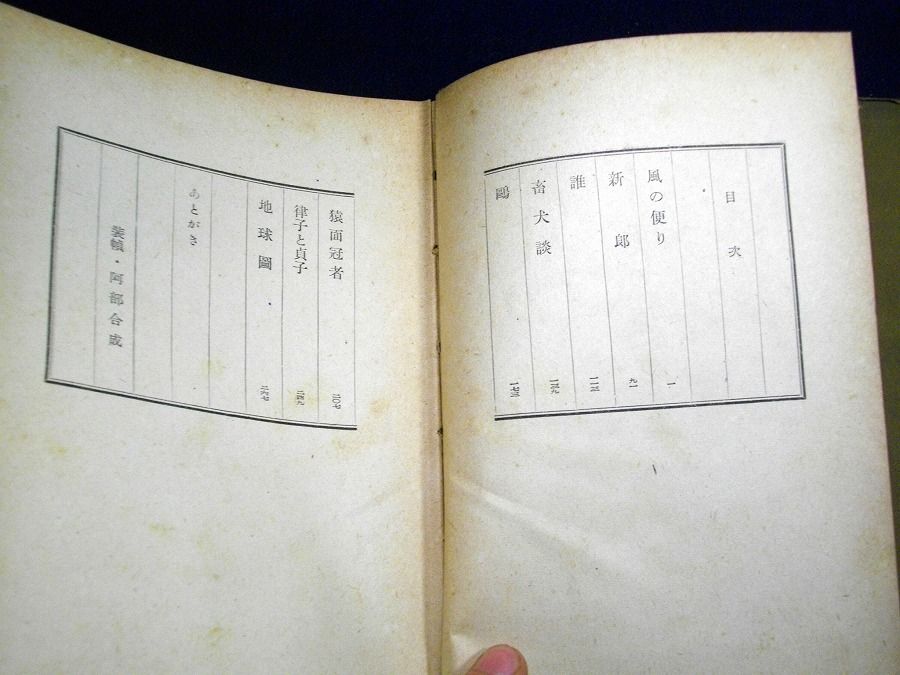 目次
風の便り 一
新郎 九一
誰 一一三
畜犬談 一三九
鷗 一七三
猿面冠者 二〇七
律子と貞子 二四九
地球圖 二六七
あとがき
装幀・阿部合成